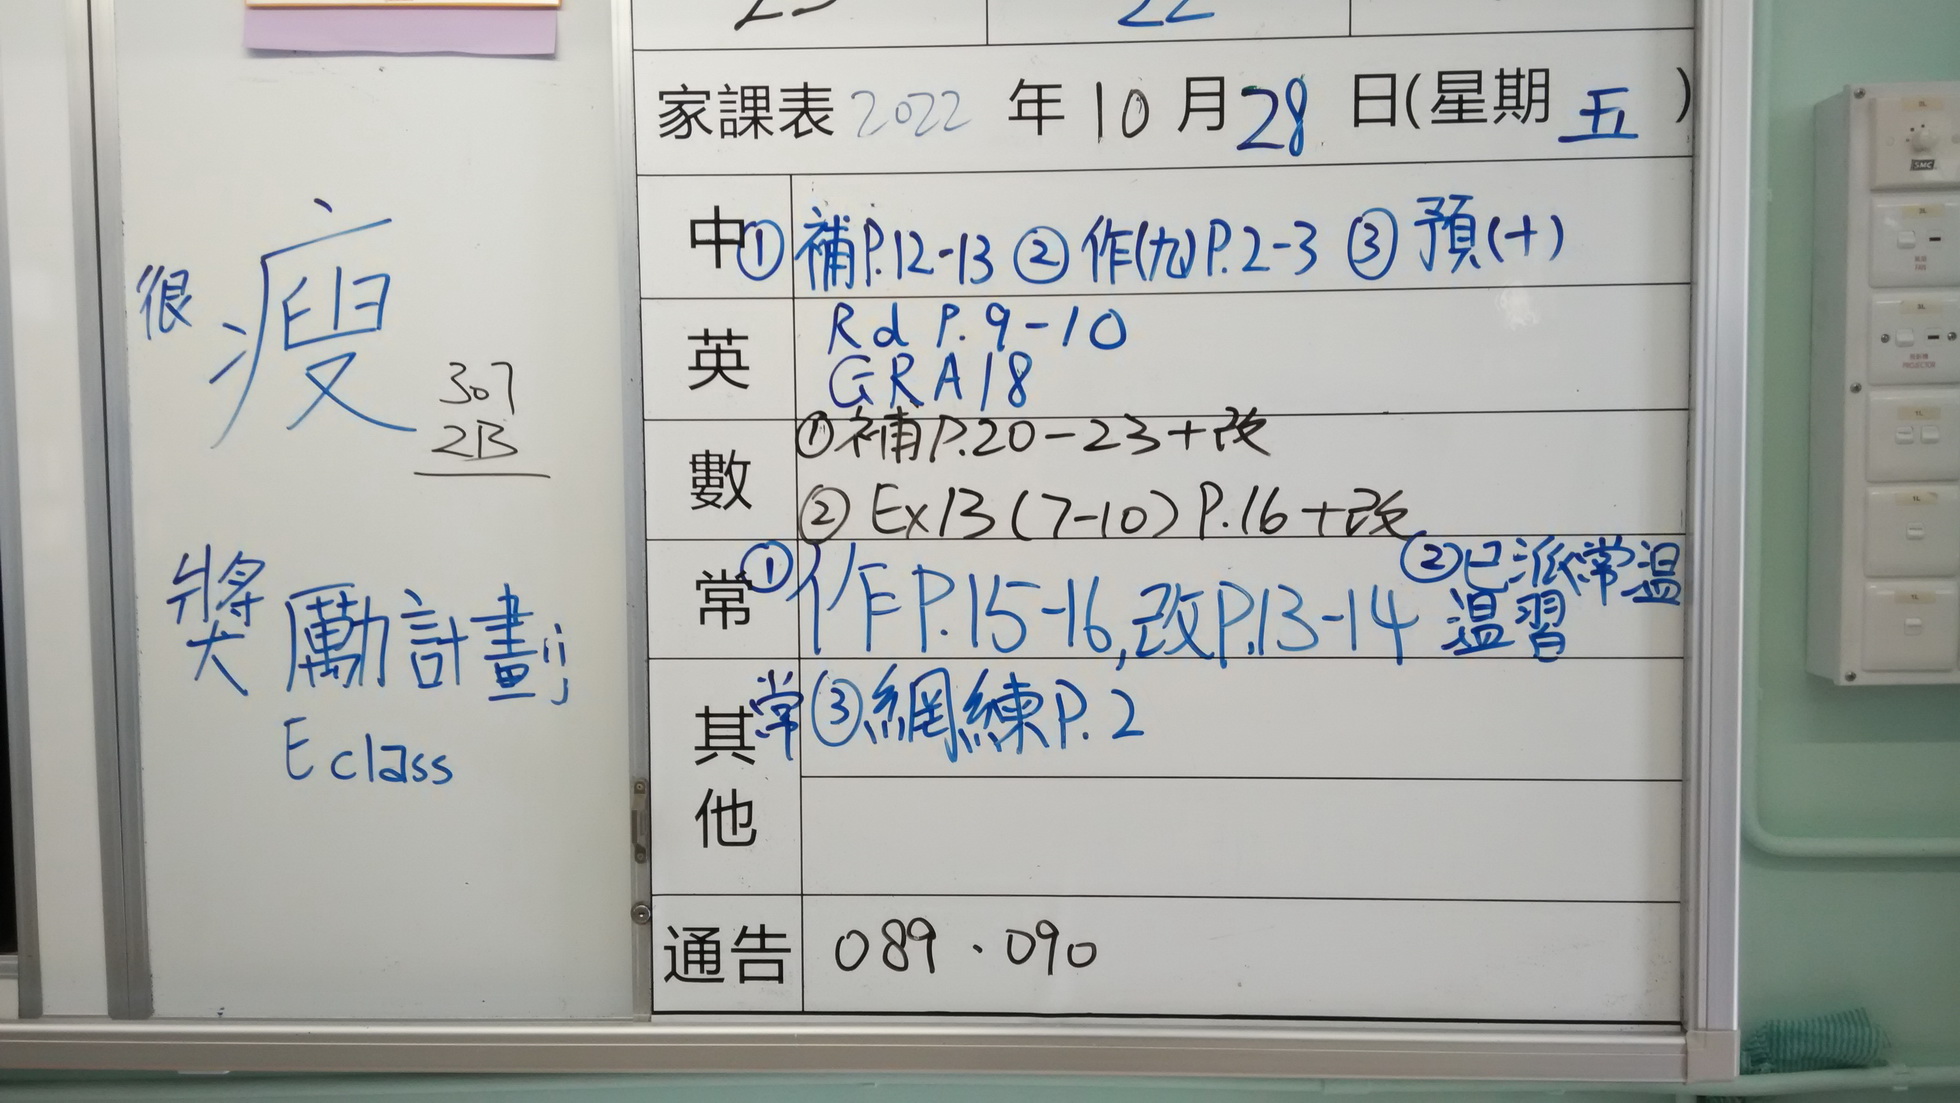 很瘦
307
2B
獎勵計劃
Eclass
22
家課表 2022 年 10 月 28 日(星期 五 )
中 ① 補P.12-13 ② 作(九)P.2-3 ③ 預(十)
英 Rd P.9-10
GRA18
數 ①補P.20-23+改
② Ex13(7-10) P.16+改
常 ① 作P.15-16,改P.13-14 ②已派常溫
溫習
其他 常③網練P.2
通告 089、090